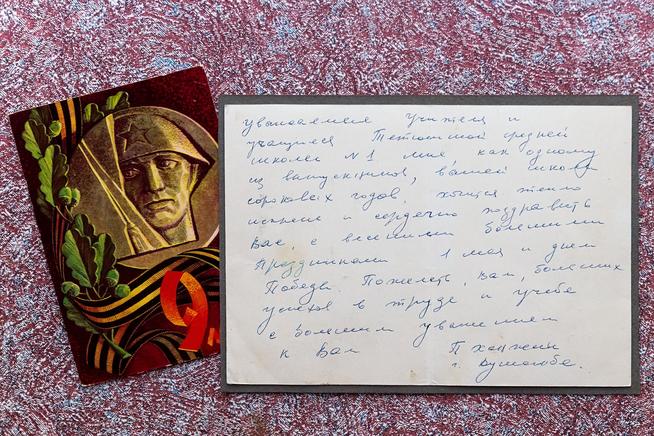 9
уважаемые учителя и
учащиеся Тетюшской средней
школы №1 мне как одному
из выпускников, вашей школы
сороковых годов, хочется тепло
искренне и сердечно поздравить
Вас, с весенними большими
праздниками 1 мая и днем
Победы. Пожелать, Вам, больших
успехов в труде и учебе
с большим уважением
к Вам
г. Душанбе.